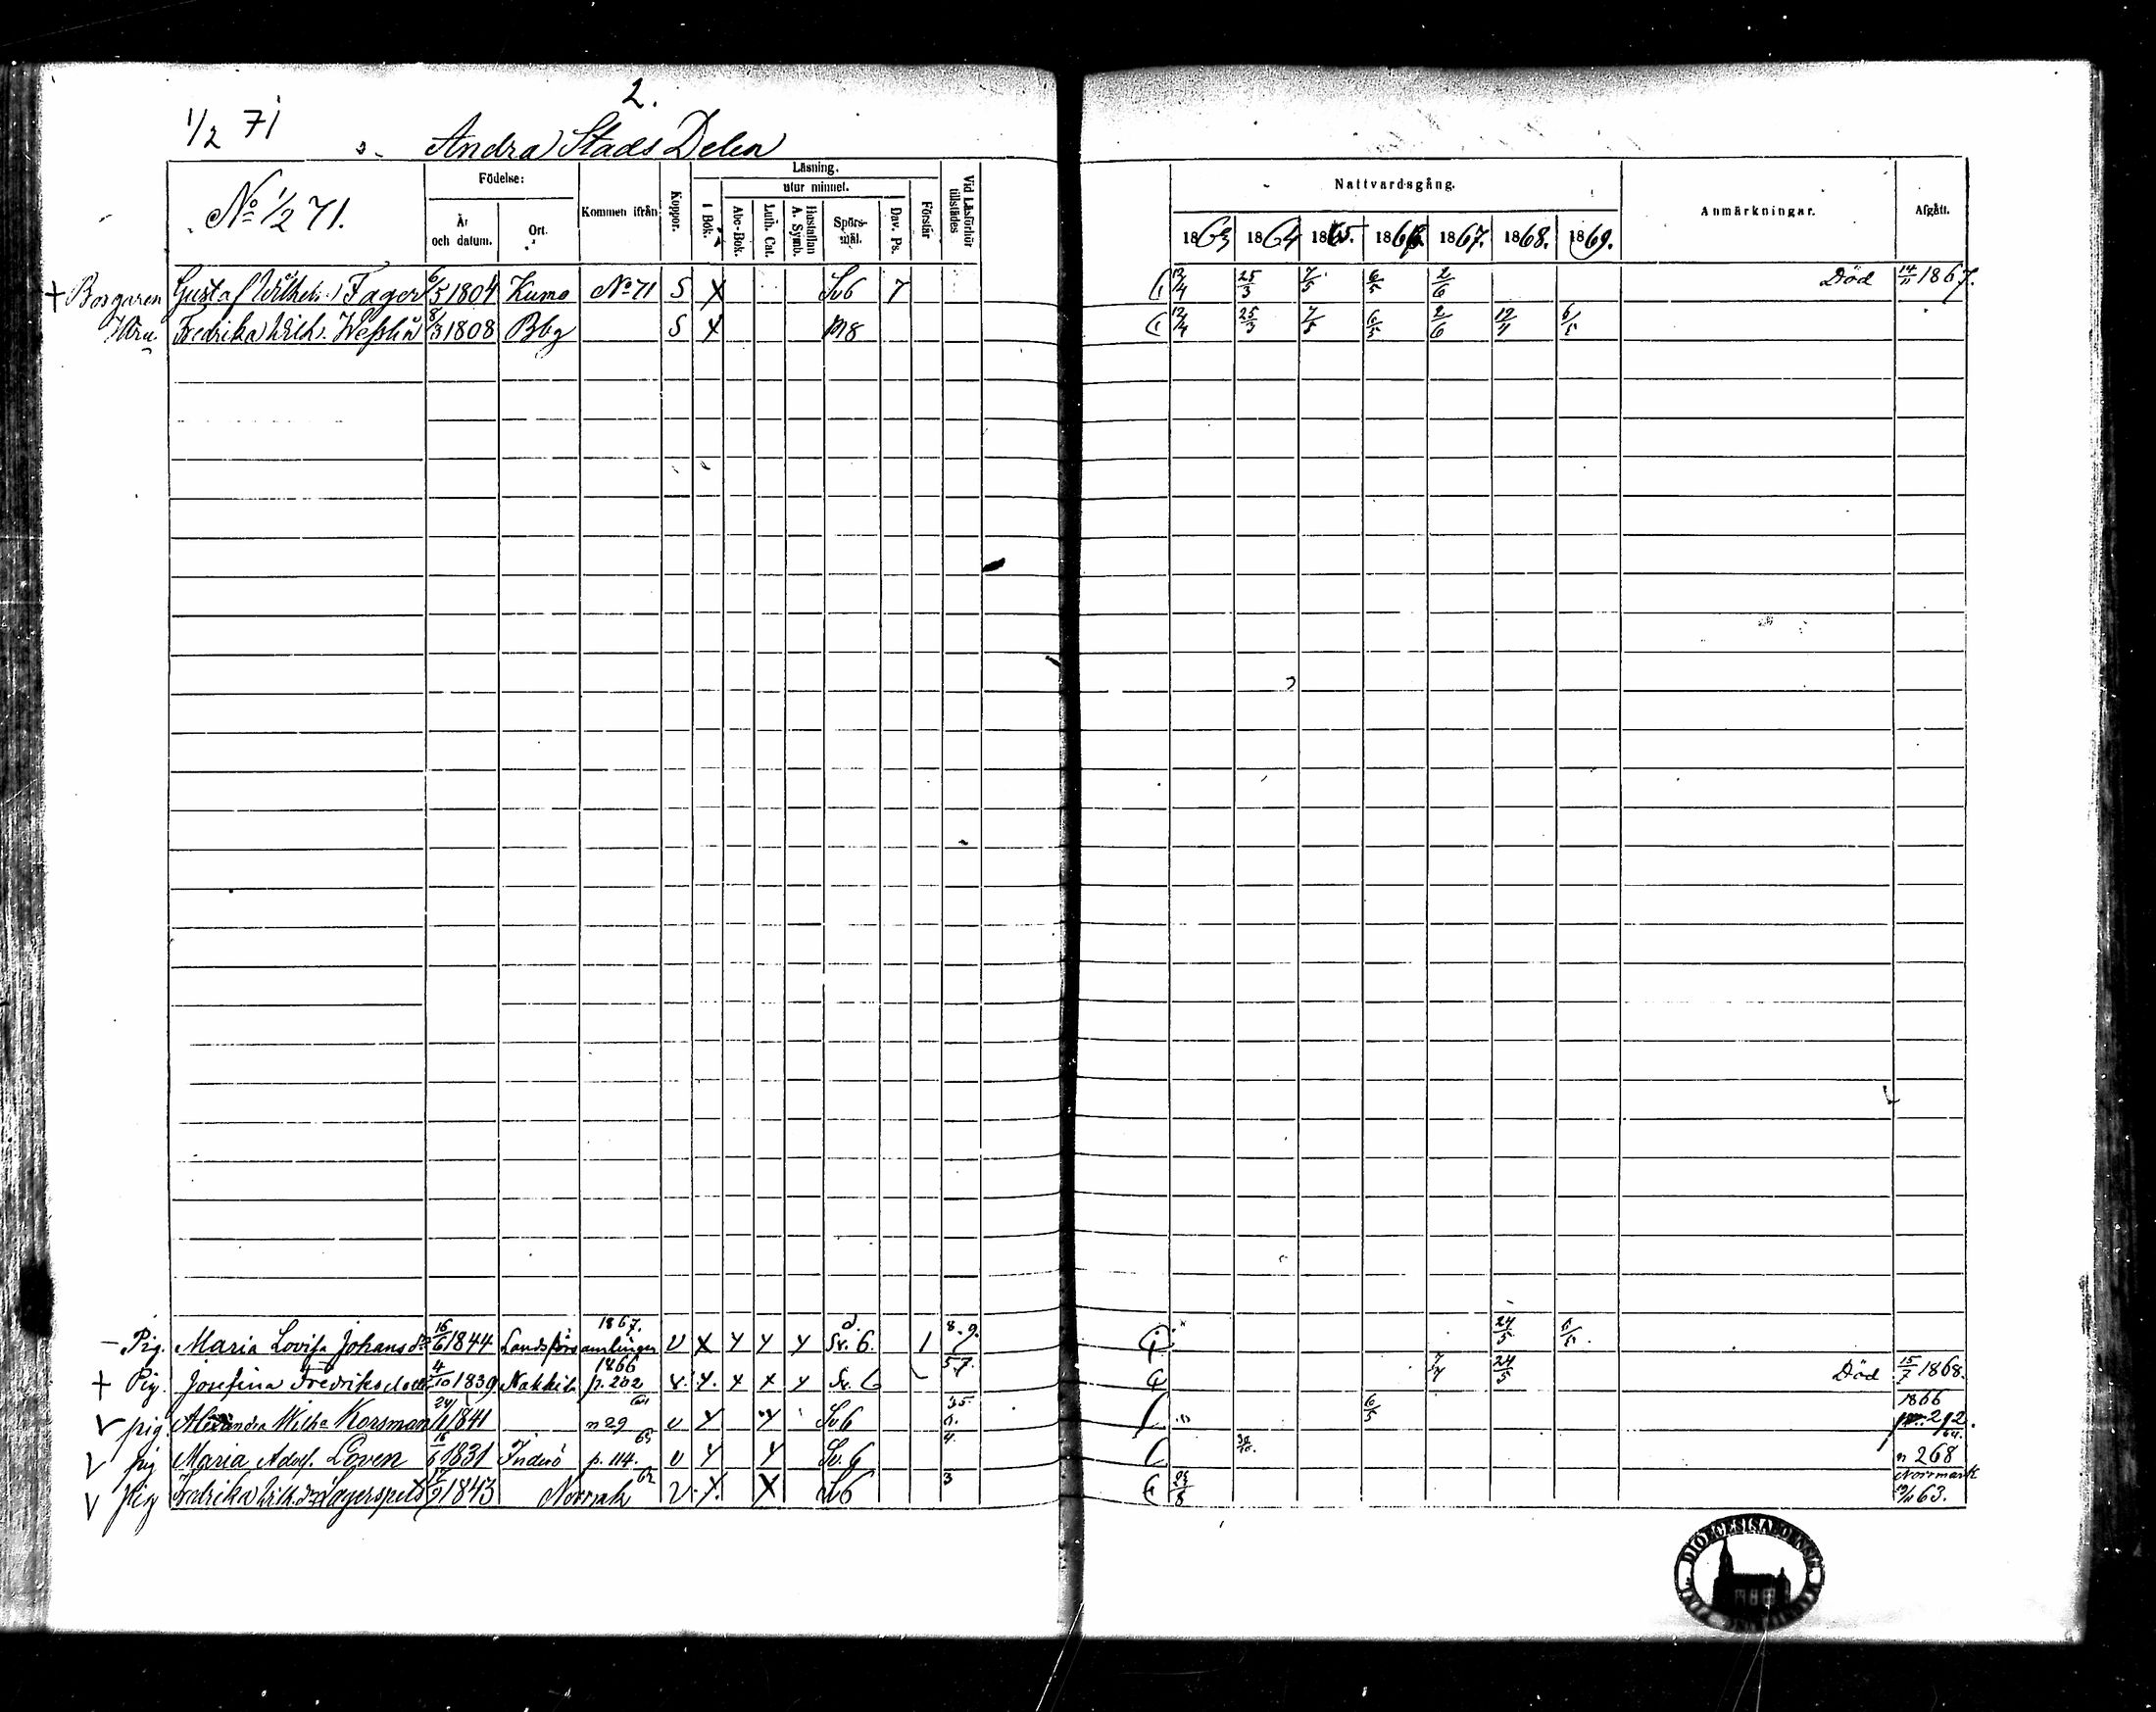 2.
1/2 71
Andra Stads Delen
No 1/2 71.
Födelse:
År och datum.
Ort.
Kommen ifrån
Koppor.
Läsning.
I Bok.
utur minnet.
Abc-Bok.
Luth. Cat.
Hustaflan A. Symb.
Spörs-mål.
Dav. Ps.
Förstår
Vid Läsförhör tillstädes
Nattvardsgång.
1863 1864 1865. 1866. 1867. 1868. 1869.
Anmärkningar.
Afgått.
+ Borgaren Gustaf Wilhelm Fager 6/5 1804 Kumo No 71 S X Sv6 7 12/4 25/3 7/5 6/5 2/6 Död 14/11 1867.
Hru. Fredrika Wilh. 8/3 1808 Bbg S X 12/4 25/3 7/5 6/5 2/6 12/4
Pig. Maria Lovisa Johansdr 16/6 1844 Landsförsamlingen 1867. v X Y Y Y Sv. 6. 1 8. 9. 24/5
+ Pig. Josefina Fredriksdotter 4/10 1839 Nakkila 1866 p. 202 v. Y. Y X Y Sv. 6 5.7. 7/4 24/5 Död 15/7 1868.
v pig. Alexandra Wilh:a Korsman 1841 n 29 v Y Y Sv6 6/5 1866 212.
v pig Maria Adolf. Loven 16/6 1831 Inderö p. 114. v Y Y Sv. 6 4. 30/10. 64. n 268
v Pig Fredrika Wilh. Lagerspets 1843 Norrmark 62 v. Y. X 3 Norrmark 63.
DIOECESIS ABOENSIS